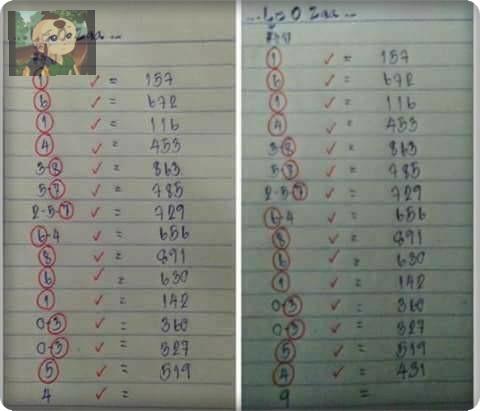 Zaa ...
1 ✓ = 157
6 ✓ = 672
1 ✓ = 116
4 ✓ = 453
3-8 ✓ = 863
5-7 ✓ = 785
2-5-7 ✓ = 729
6-4 ✓ = 656
8 ✓ = 891
6 ✓ = 630
1 ✓ = 142
0-3 ✓ = 360
0-3 ✓ = 327
5 ✓ = 519
4 =
... L=O Zaa ...
1 ✓ = 157
6 ✓ = 672
1 ✓ = 116
4 ✓ = 453
3-8 ✓ = 863
5-7 ✓ = 785
2-5-7 ✓ = 729
6-4 ✓ = 656
8 ✓ = 891
6 ✓ = 630
1 ✓ = 142
0-3 ✓ = 360
0-3 ✓ = 327
5 ✓ = 519
4 ✓ = 431
9 =